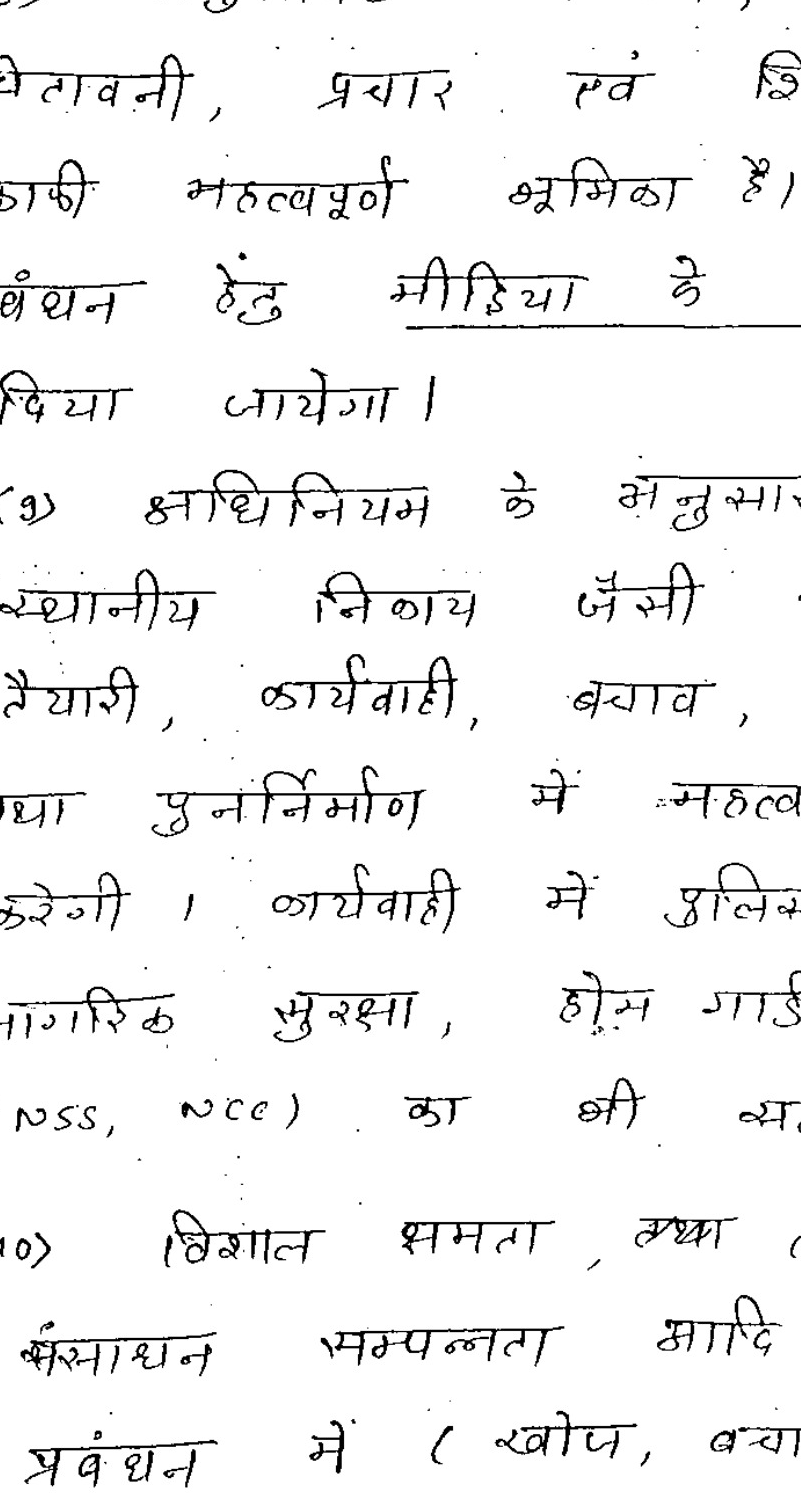 चेतावनी, प्रचार एवं शि
काफी महत्वपूर्ण भूमिका है।
बंधन हेतु मीडिया के
दिया जायेगा।
(9) अधिनियम के अनुसार
स्थानीय निकाय जैसी
तैयारी, कार्यवाही, बचाव,
था पुनर्निर्माण में महत्व
करेगी। कार्यवाही में पुलिस
नागरिक सुरक्षा, होम गार्ड
NSS, NCC) का भी स
10) विशाल क्षमता, तथा (
संसाधन सम्पन्नता आदि
प्रबंधन में ( खोज, बचा